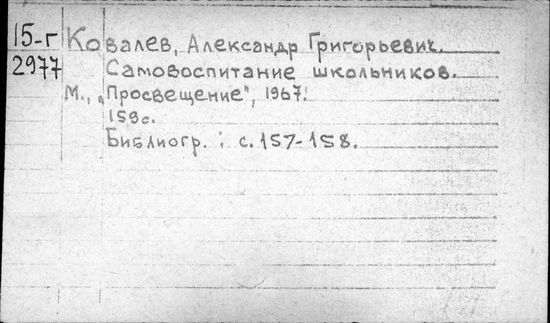 15-г Ковалев, Александр Григорьевич.
2977 Самовоспитание школьников.
М., „Просвещение", 1967.
159с.
Библиогр.: с.157-158.